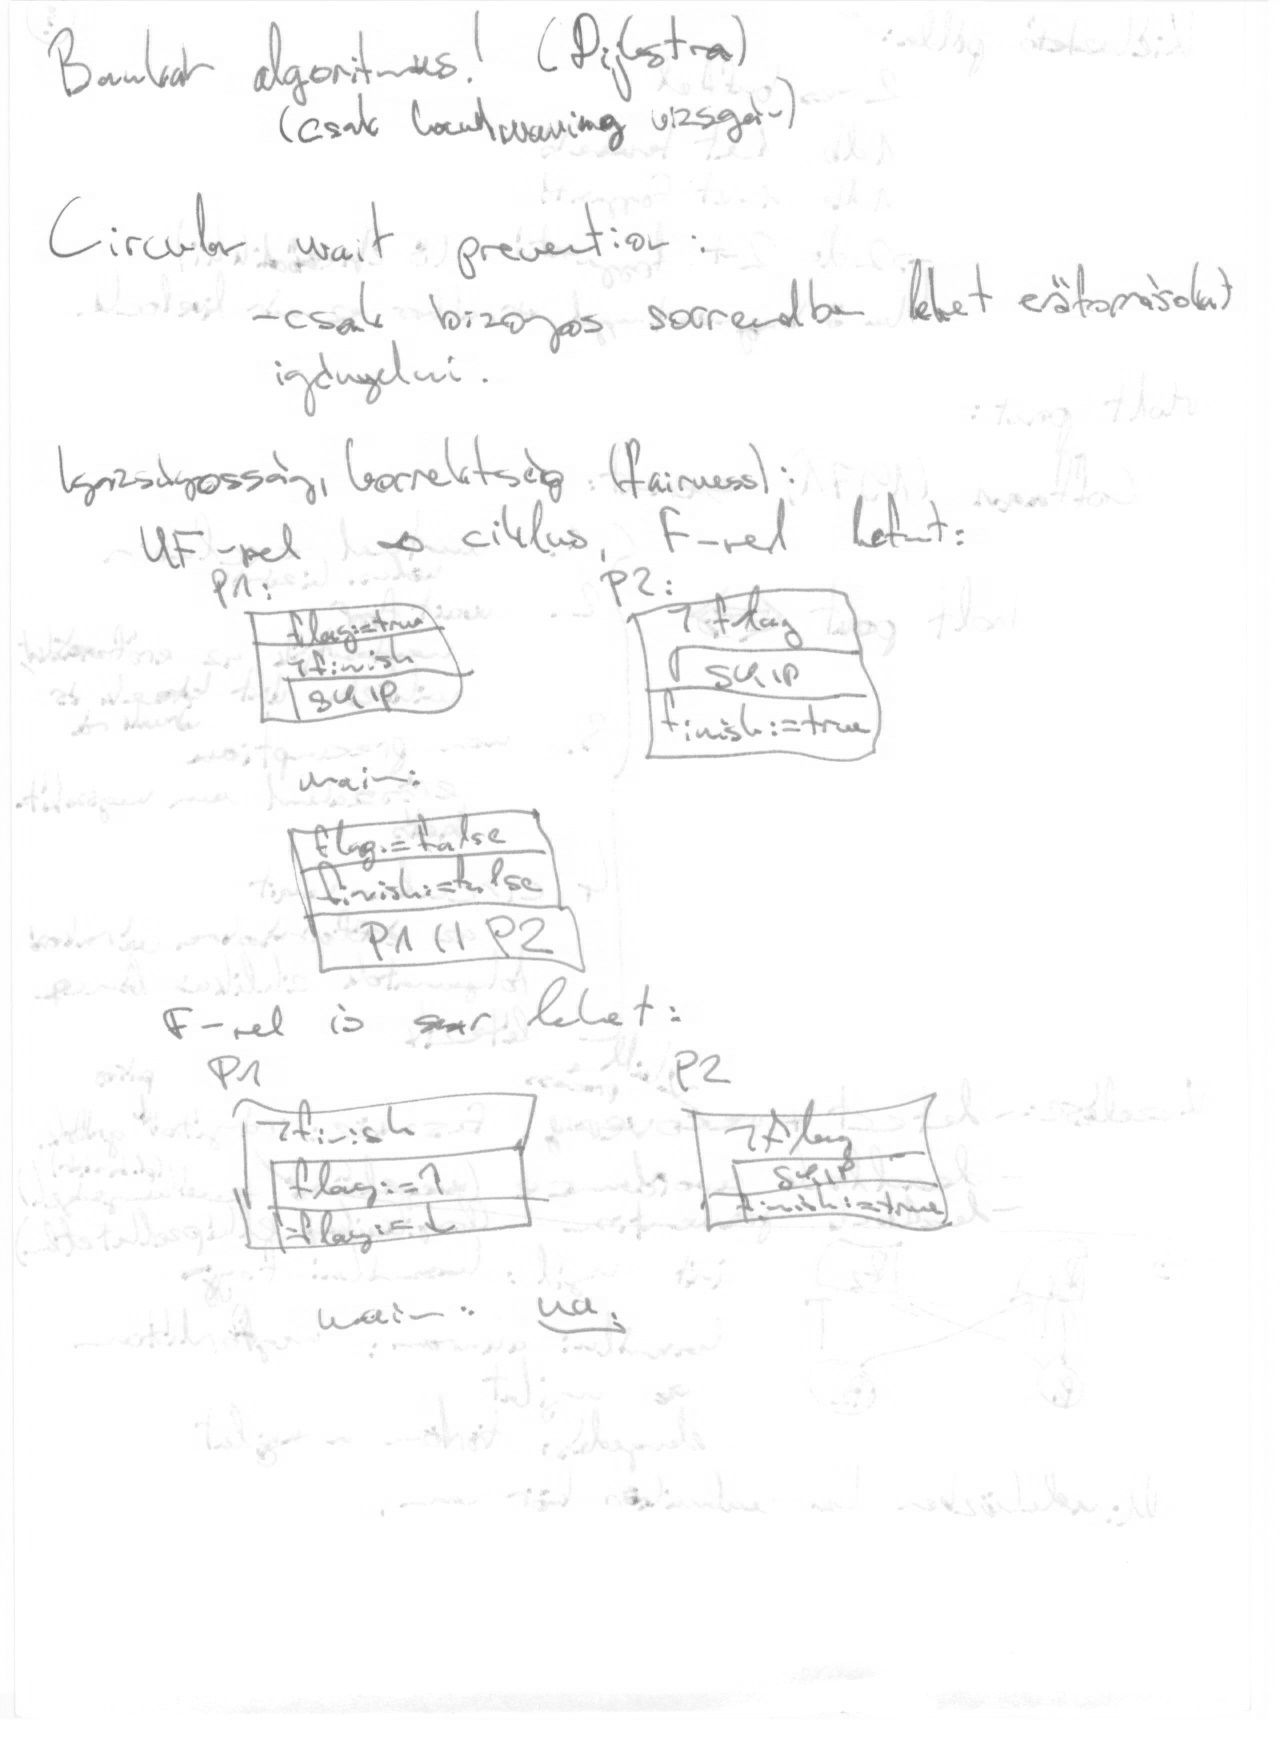 Bankár algoritmus! (Dijkstra)
(csak vizsgán)
Circular wait prevention:
- csak bizonyos sorrendben lehet erőforrásokat
igényelni.
Igazságosság, korrektség (fairness):
UF-nel ciklus, F-nel lehet:
P1:
P2:
flag:=true
¬finish
SKIP
¬flag
SKIP
finish:=true
main:
flag:=false
finish:=false
P1 || P2
F-nel is lehet:
P1
P2
¬finish
flag:=↑
flag:=↓
¬flag
SKIP
finish:=true
main: ua.